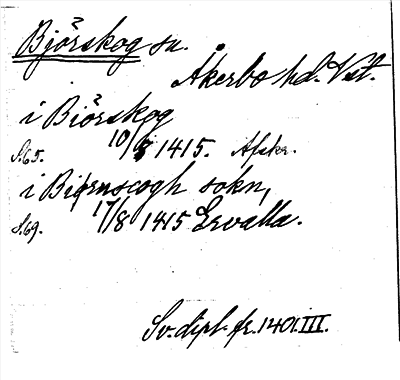 Björskog sn.
Åkerbo hd. Vstm.
i Biörskog
S.65. 10/8 1415. Afskr.
i Biørnscogh sokn,
S.69. 17/8 1415 Ervalla.
Sv. dipl. fr. 1401. III.